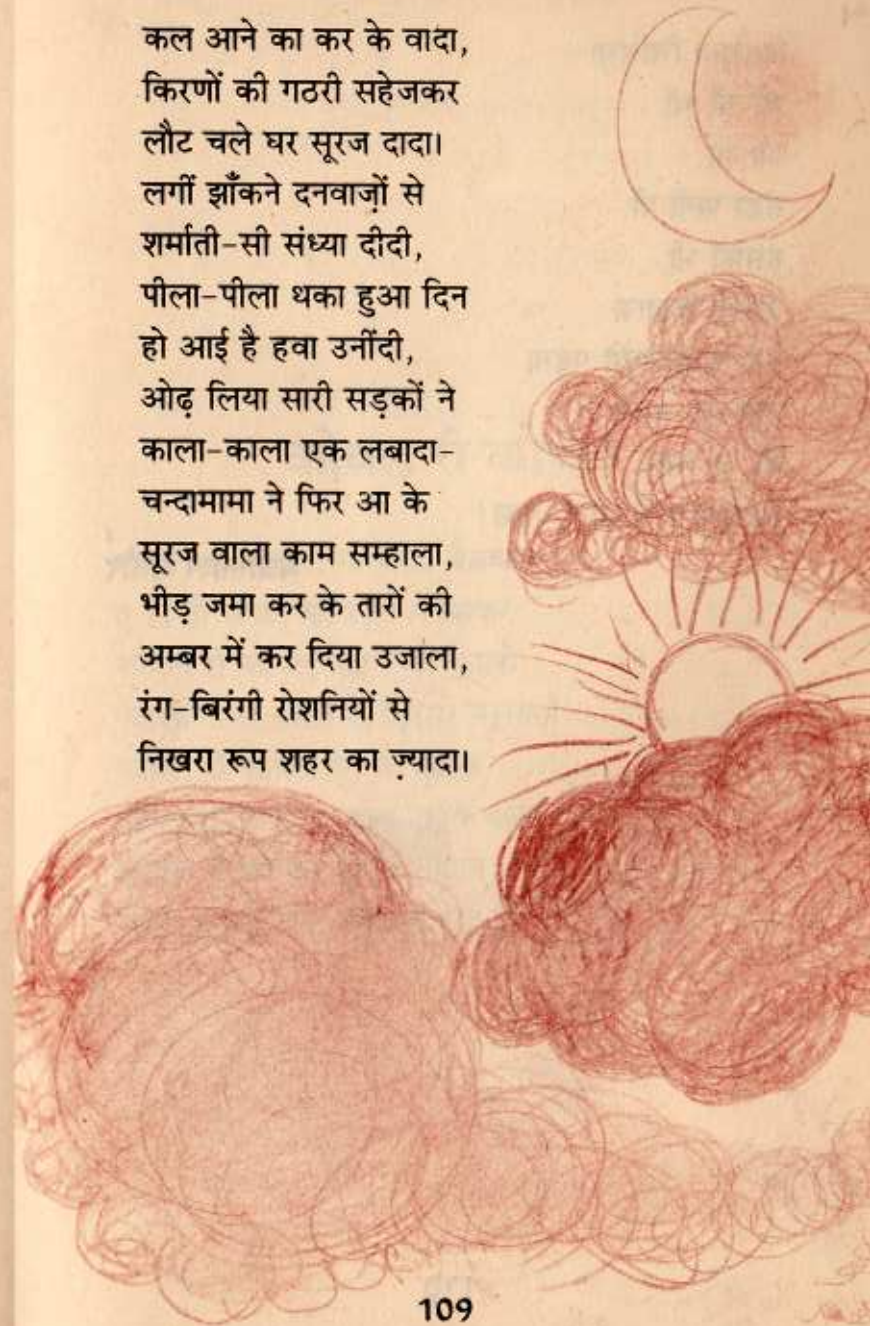 कल आने का कर के वादा,
किरणों की गठरी सहेजकर
लौट चले घर सूरज दादा।
लगीं झाँकने दनवाज़ों से
शर्माती-सी संध्या दीदी,
पीला-पीला थका हुआ दिन
हो आई है हवा उनींदी,
ओढ़ लिया सारी सड़कों ने
काला-काला एक लबादा-
चन्दामामा ने फिर आ के
सूरज वाला काम सम्हाला,
भीड़ जमा कर के तारों की
अम्बर में कर दिया उजाला,
रंग-बिरंगी रोशनियों से
निखरा रूप शहर का ज़्यादा।
109